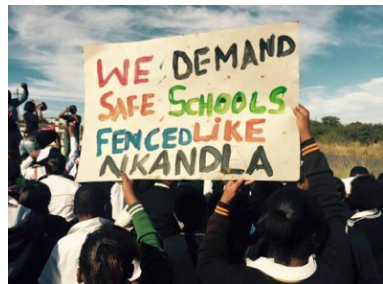 WE DEMAND
SAFE SCHOOLS
FENCED LIKE
NKANDLA